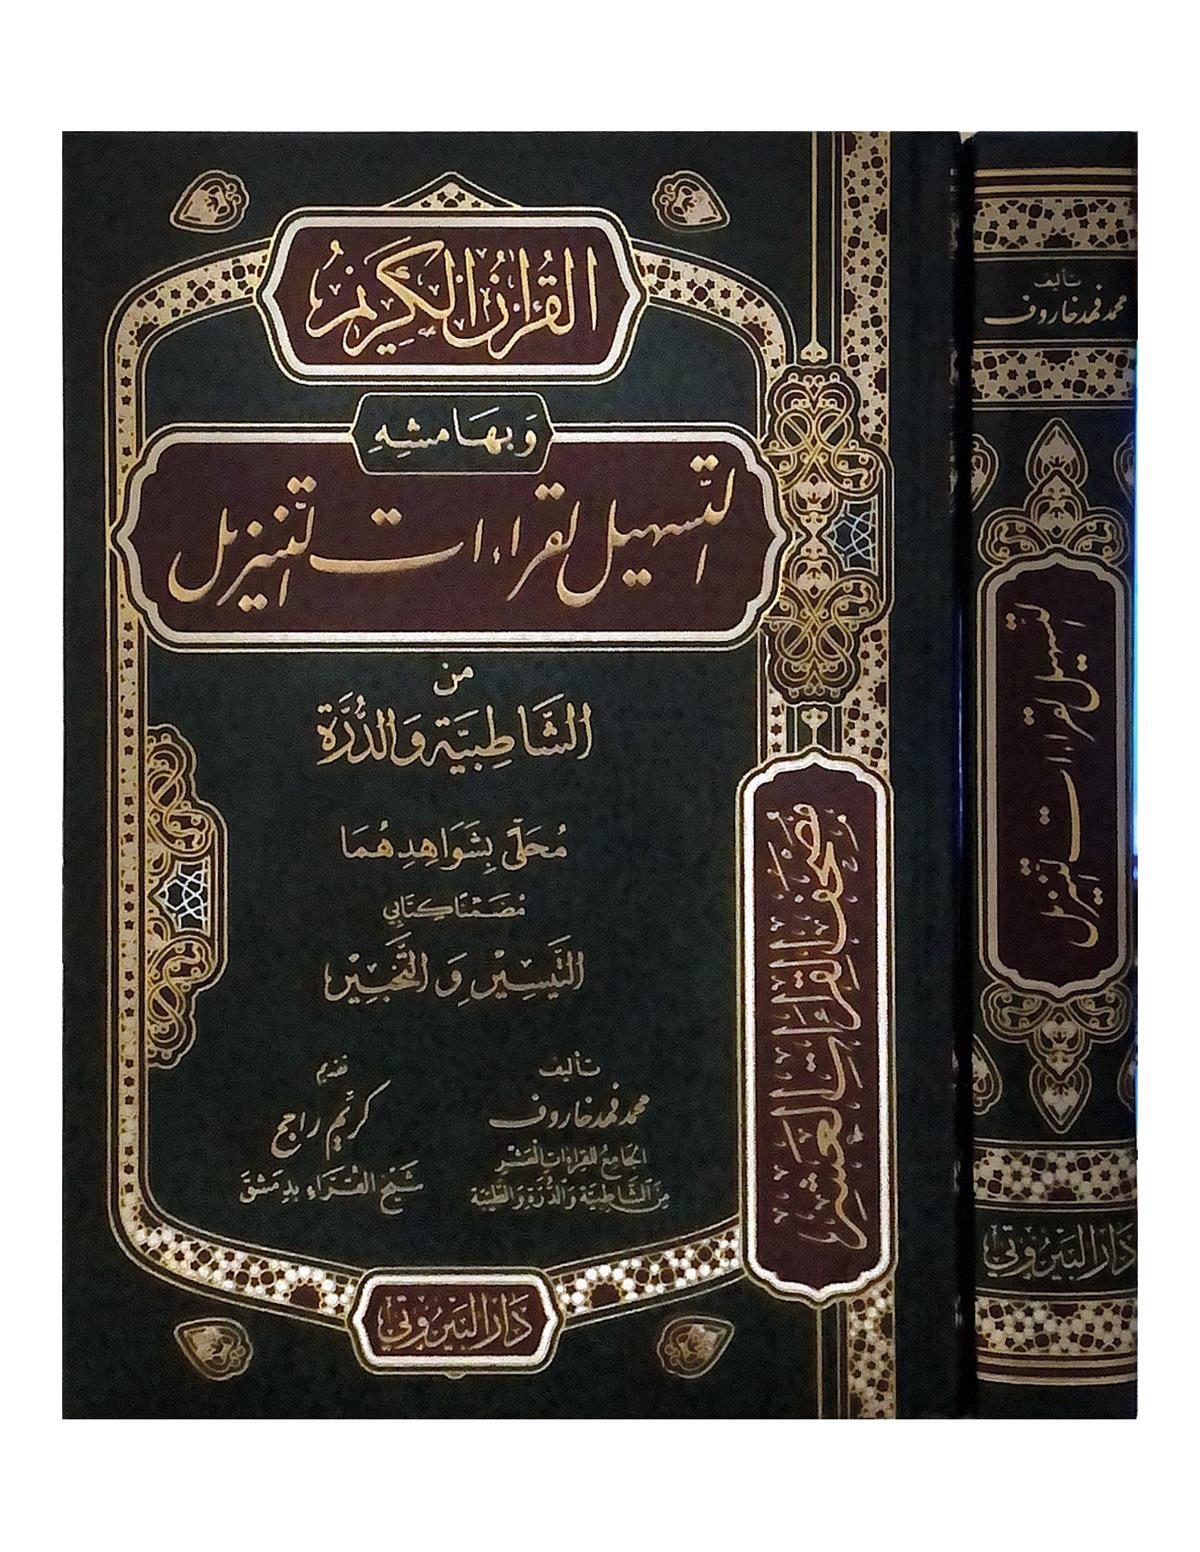 القُرآنُ الكَرِيمُ
وَبِهَامِشِهِ
التَّسهيل لقراءات التَّنزيل
من
الشَّاطِبِيَّة وَالدُّرَّة
مُحَلّىً بِشَوَاهِدِهُمَا
مُضَمَّنًا كِتَابَي
التَّيْسِيْرِ وَ التَّحْبِيْرِ
تأليف
محمد فهد خاروف
الجَامِعُ للقِرَاءَاتِ العَشْرِ
مِنَ الشَّاطِبِيَّةِ وَالدُّرَّةِ وَالطَّيِّبَةِ
تقديم
كريِّم راجح
شَيْخ القُرَّاءِ بدِمَشق
دَارُ البَيْرُوتي
مُصْحَفُ القِرَاءَاتِ العَشْرِ
تأليف
محمد فهد خاروف
التَّسهيل لقراءات التَّنزيل
دَارُ البَيْرُوتي